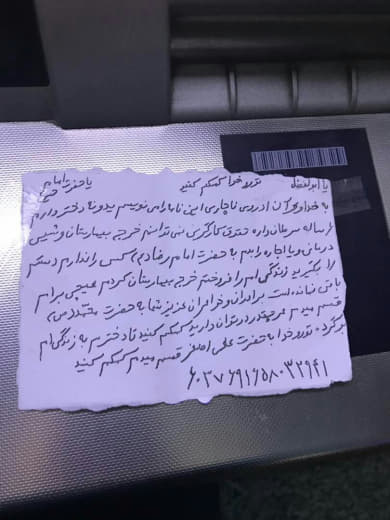 یا ابوالفضل تورو خدا کمکم کنید یا حضرت امام
به خدا و قرآن از روی ناچاری این نامه را می نویسم یدونه دختر دارم
۶ ساله سرطان داره حقوق کارگری نمی توانم خرجی بیمارستان و شیمی
درمانی و یا اجاره را بدم یا حضرت امام رضا دیگه کسی را ندارم دستم
را بگیرید زندگی ام را فروختم خرجی بیمارستان کردم هیچی برام
باقی نمانده است برادران و خواهران عزیز شما به حضرت
قسم میدم هرچقدر در توان دارید کمکم کنید تا دخترم به زندگی ام
برگرده تورو خدا به حضرت علی اصغر قسم میدم کمکم کنید
۶۰۳۷۶۹۱۶۵۸۰۳۲۹۴۱